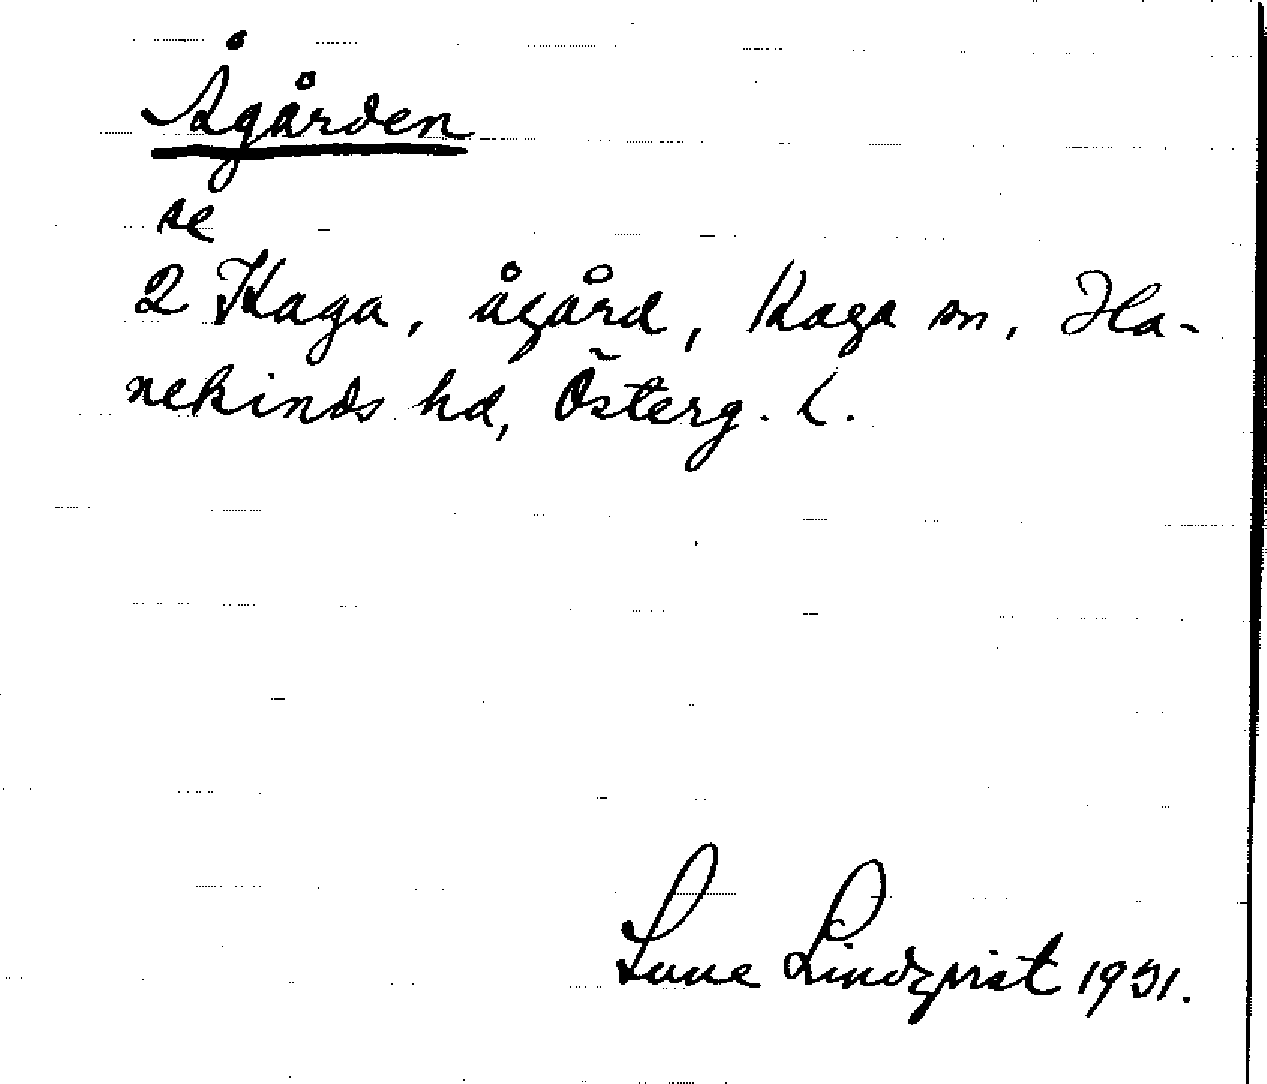 Ågården
se
2 Kaga, ågård, Kaga sn, Ha-
nekinds hd, Österg. l.
Sune Lindqvist 1931.